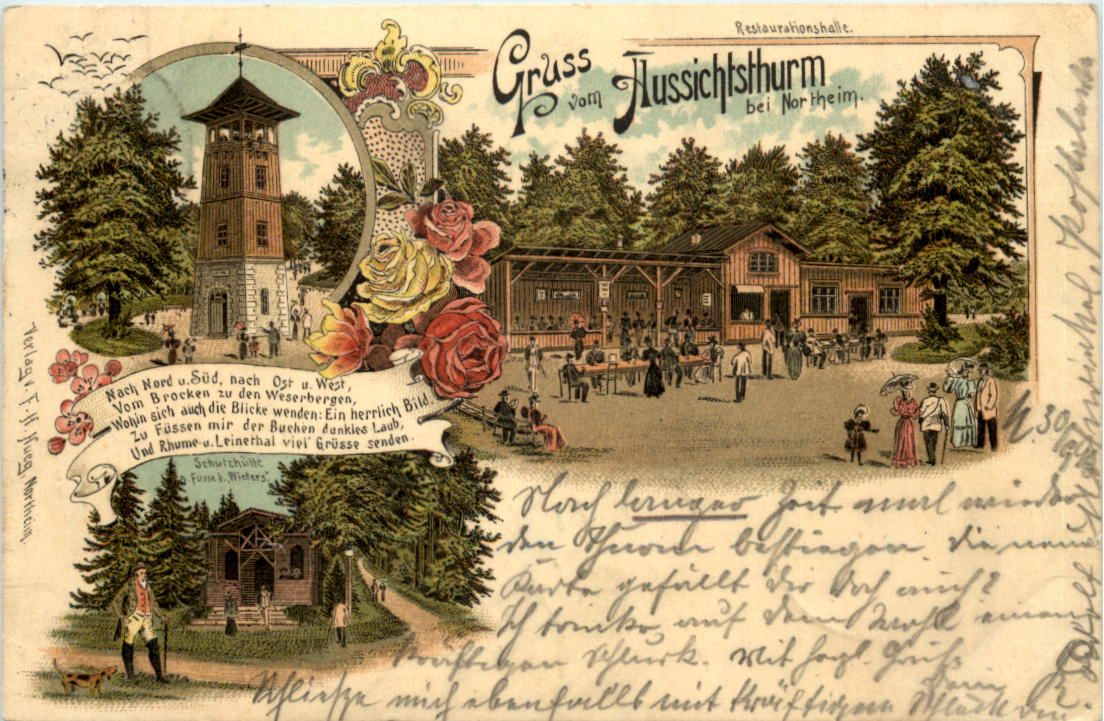 Restaurationshalle.
Gruss vom Aussichtsthurm
bei Northeim.
Nach Nord u. Süd, nach Ost u. West,
Vom Brocken zu den Weserbergen,
Wohin sich auch die Blicke wenden: Ein herrlich Bild.
Zu Füssen mir der Buchen dunkles Laub,
Und Rhume- u. Leinethal viel' Grüsse senden.
Schutzhütte
a. Fusse d. „Wieters".
Verlag v. F. H. Nueg, Northeim.
Nach langer Zeit mal wieder
den Thurm bestiegen. die neue
Karte gefällt Dir doch auch?
Ich trinke auf dein Wohl einen
kräftigen Schluck. Mit hzgl. Gruß
Schließe mich ebenfalls mit kräftigem Schluck an